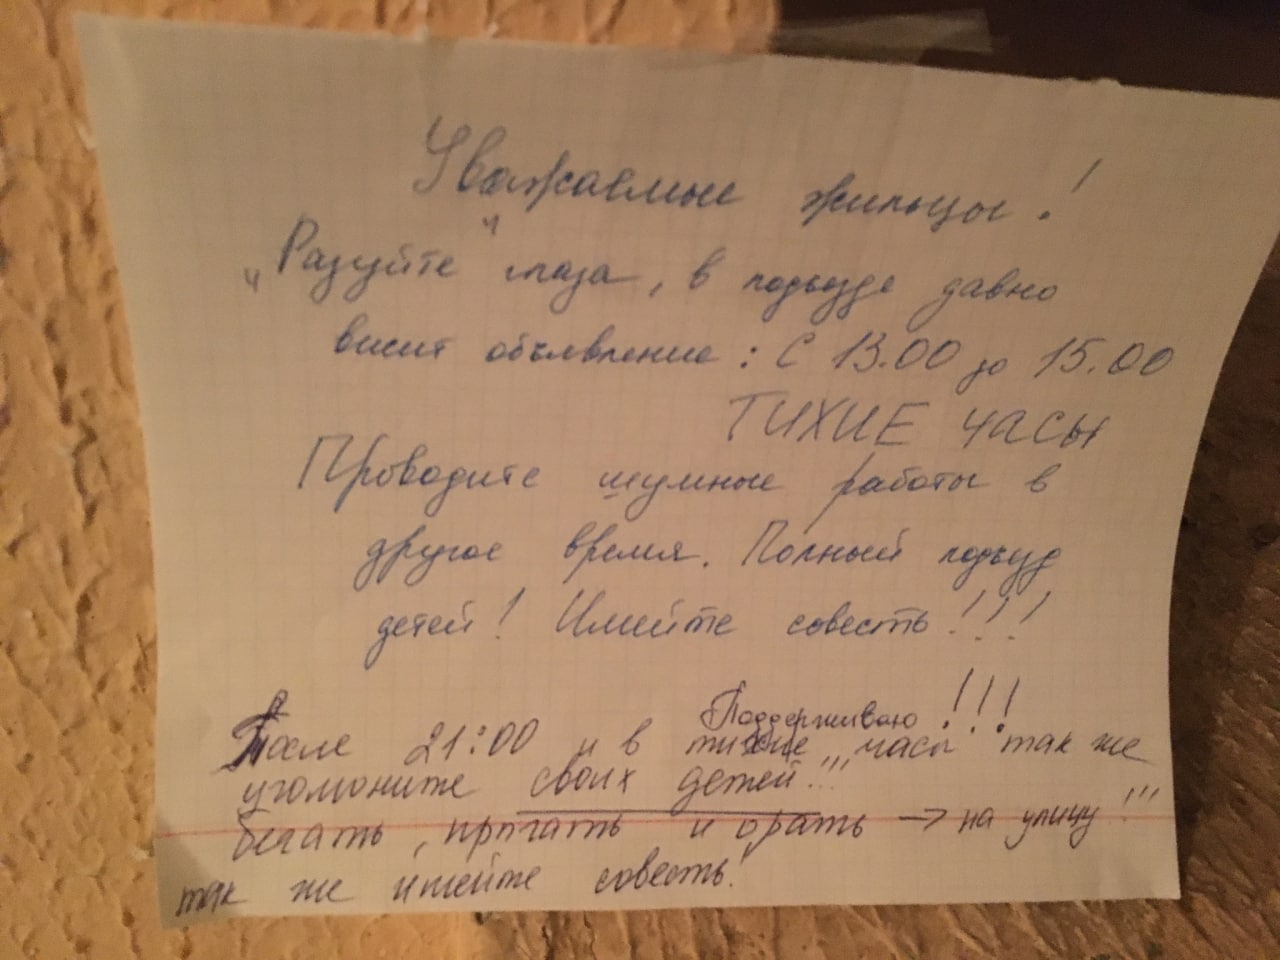 Уважаемые жильцы!
"Разуйте" глаза, в подъезде давно
висит объявление: С 13.00 до 15.00
ТИХИЕ ЧАСЫ
Проводите шумные работы в
другое время. Полный подъезд
детей! Имейте совесть!!!
Поддерживаю!!!
После 21:00 и в тихие часы так же
угомоните своих детей!!!
бегать, прыгать и орать → на улицу!!!
так же имейте совесть!